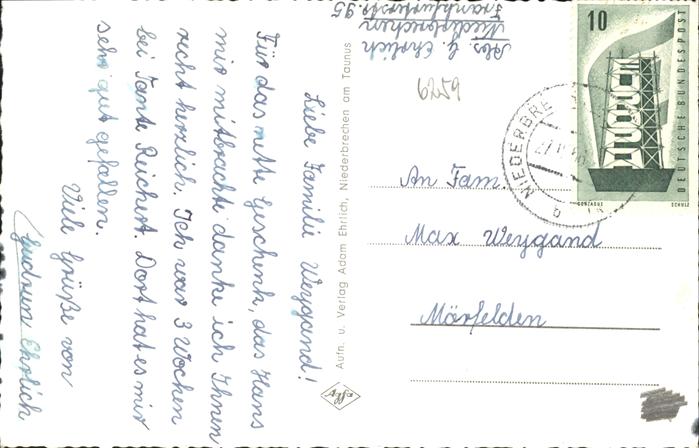 Liebe Familie Weygand!
Für das nette Geschenk, das Hans
mir mitbrachte danke ich Ihnen
recht herzlich. Ich war 3 Wochen
bei Tante Reichert. Dort hat es mir
sehr gut gefallen.
Viele Grüße von
Gudrun Ehrlich
Aufn. u. Verlag Adam Ehrlich, Niederbrechen am Taunus
Abs. G. Ehrlich
Niederbrechen
Frankfurterstr. 95
6259
10
DEUTSCHE BUNDESPOST
GONZAGUE
SCHULZ
NIEDERBRE
An Fam.
Max Weygand
Mörfelden